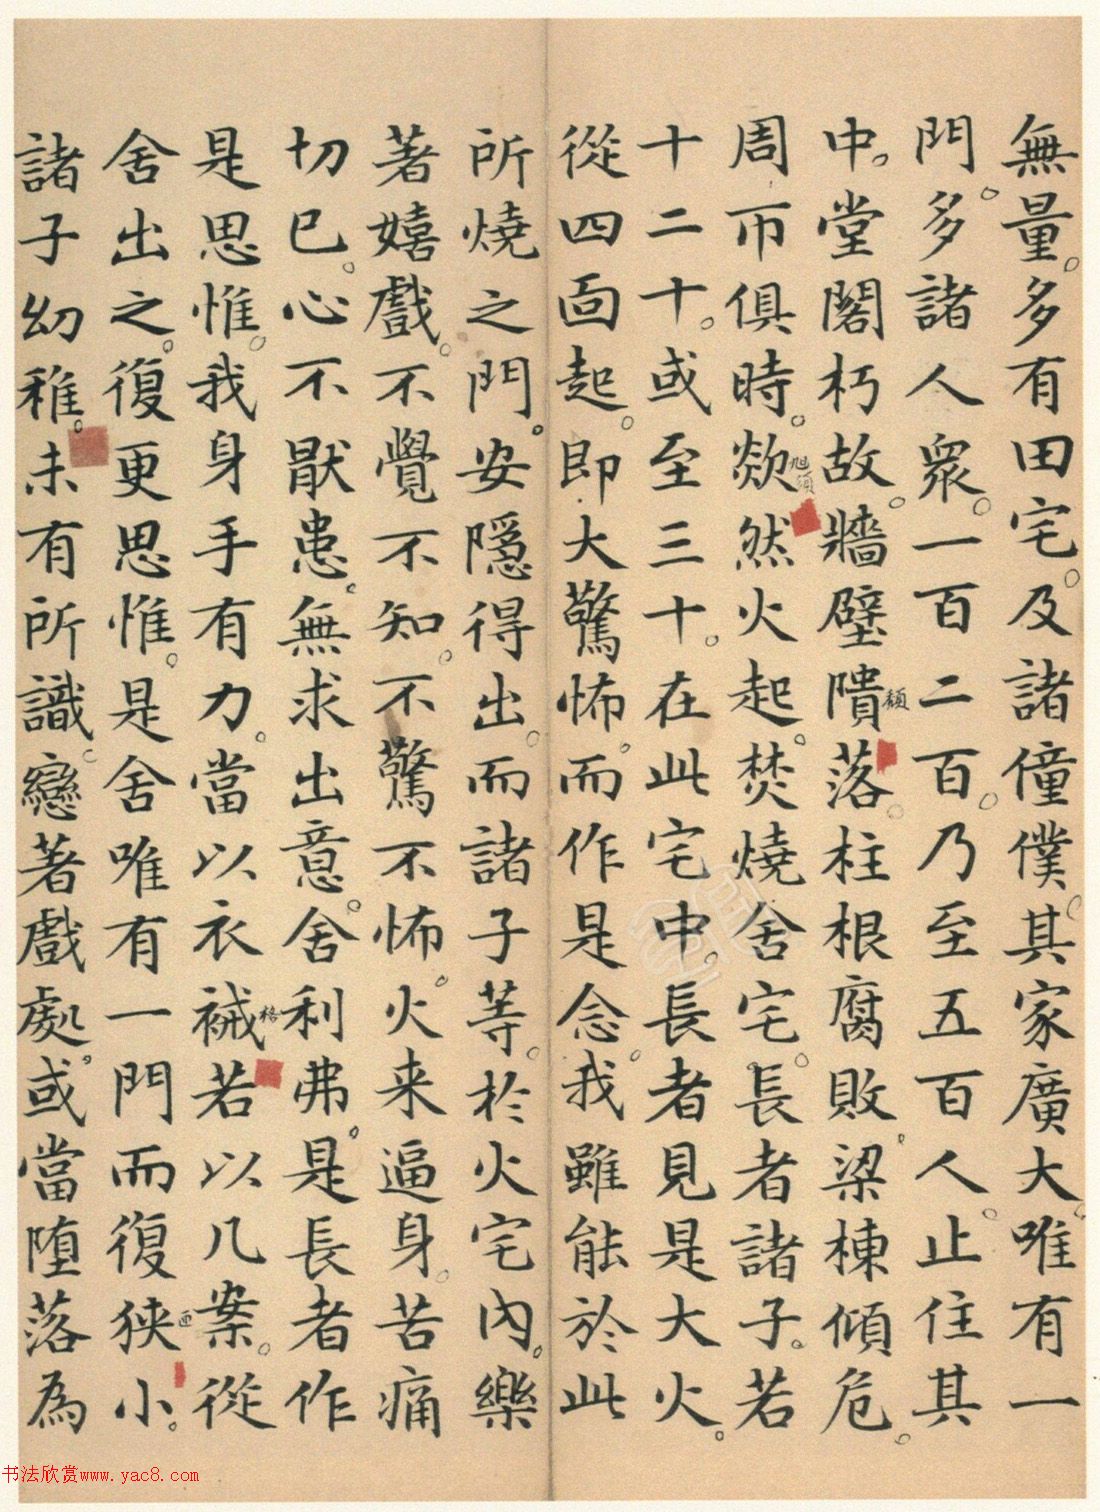 無量。多有田宅。及諸僮僕。其家廣大。唯有一
門。多諸人眾。一百二百。乃至五百人。止住其
中。堂閣朽故。牆壁隤落。柱根腐敗。梁棟傾危。
周帀俱時。欻然火起。焚燒舍宅。長者諸子。若
十二十。或至三十。在此宅中。長者見是大火。
從四面起。即大驚怖。而作是念。我雖能於此
所燒之門。安隱得出。而諸子等。於火宅內。樂
著嬉戲。不覺不知。不驚不怖。火来逼身。苦痛
切已。心不厭患。無求出意。舍利弗。是長者作
是思惟。我身手有力。當以衣裓若以几案。從
舍出之。復更思惟。是舍唯有一門而復狹小。
諸子幼稚。未有所識。戀著戲處。或當墮落為
書法欣赏www.yac8.com